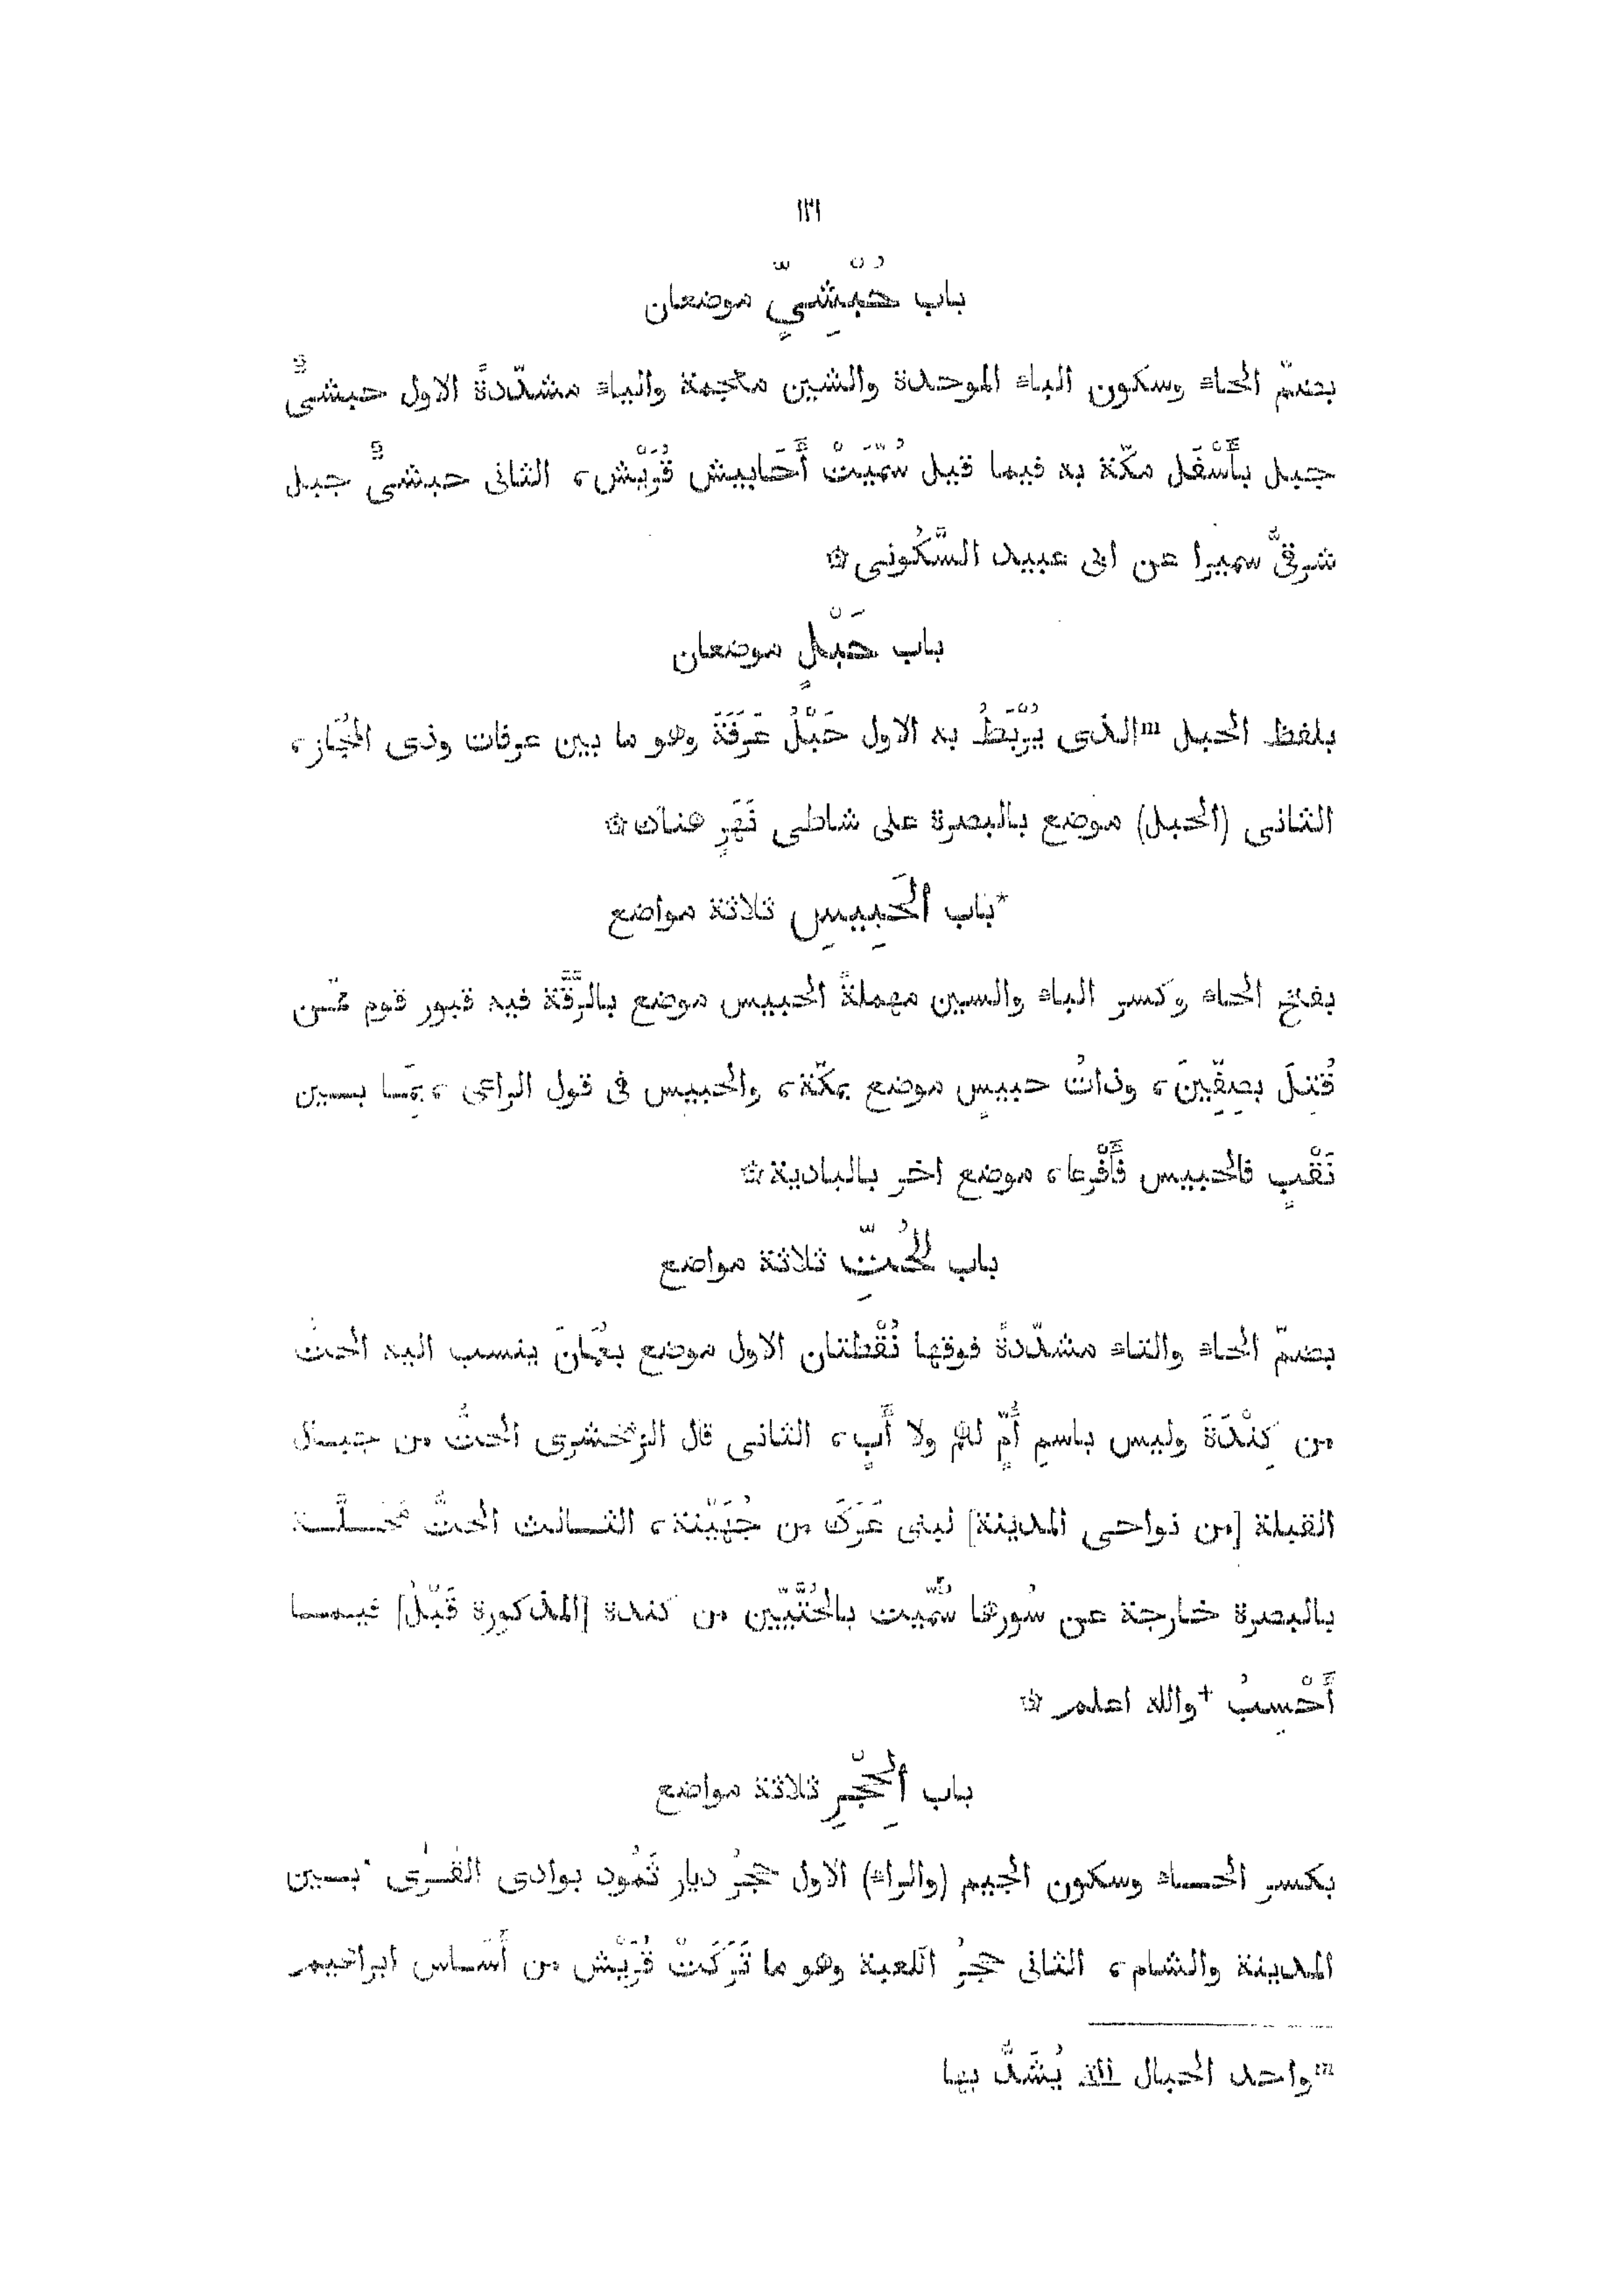 ١٣١
باب حُبْشِيٍّ موضعان
بضمّ الحاء وسكون الباء الموحدة والشين معجمة والياء مشدّدةً الاول حبشىٌّ
جبل بأَسْفَل مكّة به فيما قيل سُمّيَتْ أَحَابيش قُرَيْش، الثانى حبشىٌّ جبل
شرقىَّ سميرا عن ابى عبيد السَّكُونى ۞
باب حَبْلٍ موضعان
بلفظ الحبل mالذى يُرْبَطُ به الاول حَبْلُ عَرَفَةَ وهو ما بين عرفات وذى المَجاز،
الثانى (الحبل) موضع بالبصرة على شاطى نَهَرٍ هناك ۞
*باب الحَبِيسِ ثلاثة مواضع
بفتح الحاء وكسر الباء والسين مهملةً الحبيس موضع بالرَّقَّة فيه قبور قوم ممّن
قُتِلَ بصِفّينَ، وذاتُ حبيسٍ موضع بمكّة، والحبيس فى قول الراعى، بِمَا بين
نَقْبٍ فالحبيس فأَفْرعا، موضع اخر بالبادية ۞
باب الحُتِّ ثلاثة مواضع
بضمّ الحاء والتاء مشدّدةً فوقها نُقْطتان الاول موضع بعُمَانَ ينسب اليه الحتُّ
من كِنْدَةَ وليس باسمِ أُمٍّ لهم ولا أَبٍ، الثانى قال الزمخشرى الحتُّ من جبال
القبلة [من نواحى المدينة] لبنى عَرَك من جُهَيْنة، الثالث الحتُّ مَحَلَّة
بالبصرة خارجة عن سُورها سُمّيت بالحُتَّيّين من كندة [المذكورة قَبْلُ] فيما
أَحْسِبُ +والله اعلم ۞
باب الحِجْرِ ثلاثة مواضع
بكسر الحاء وسكون الجيم (والراء) الاول حِجْرُ ديار ثَمُود بوادى القُرَى *بين
المدينة والشام، الثانى حِجْرُ الكعبة وهو ما تَرَكَتْ قُرَيْش من أَساس ابراهيم
mواحد الحبال التى يُشَدُّ بها